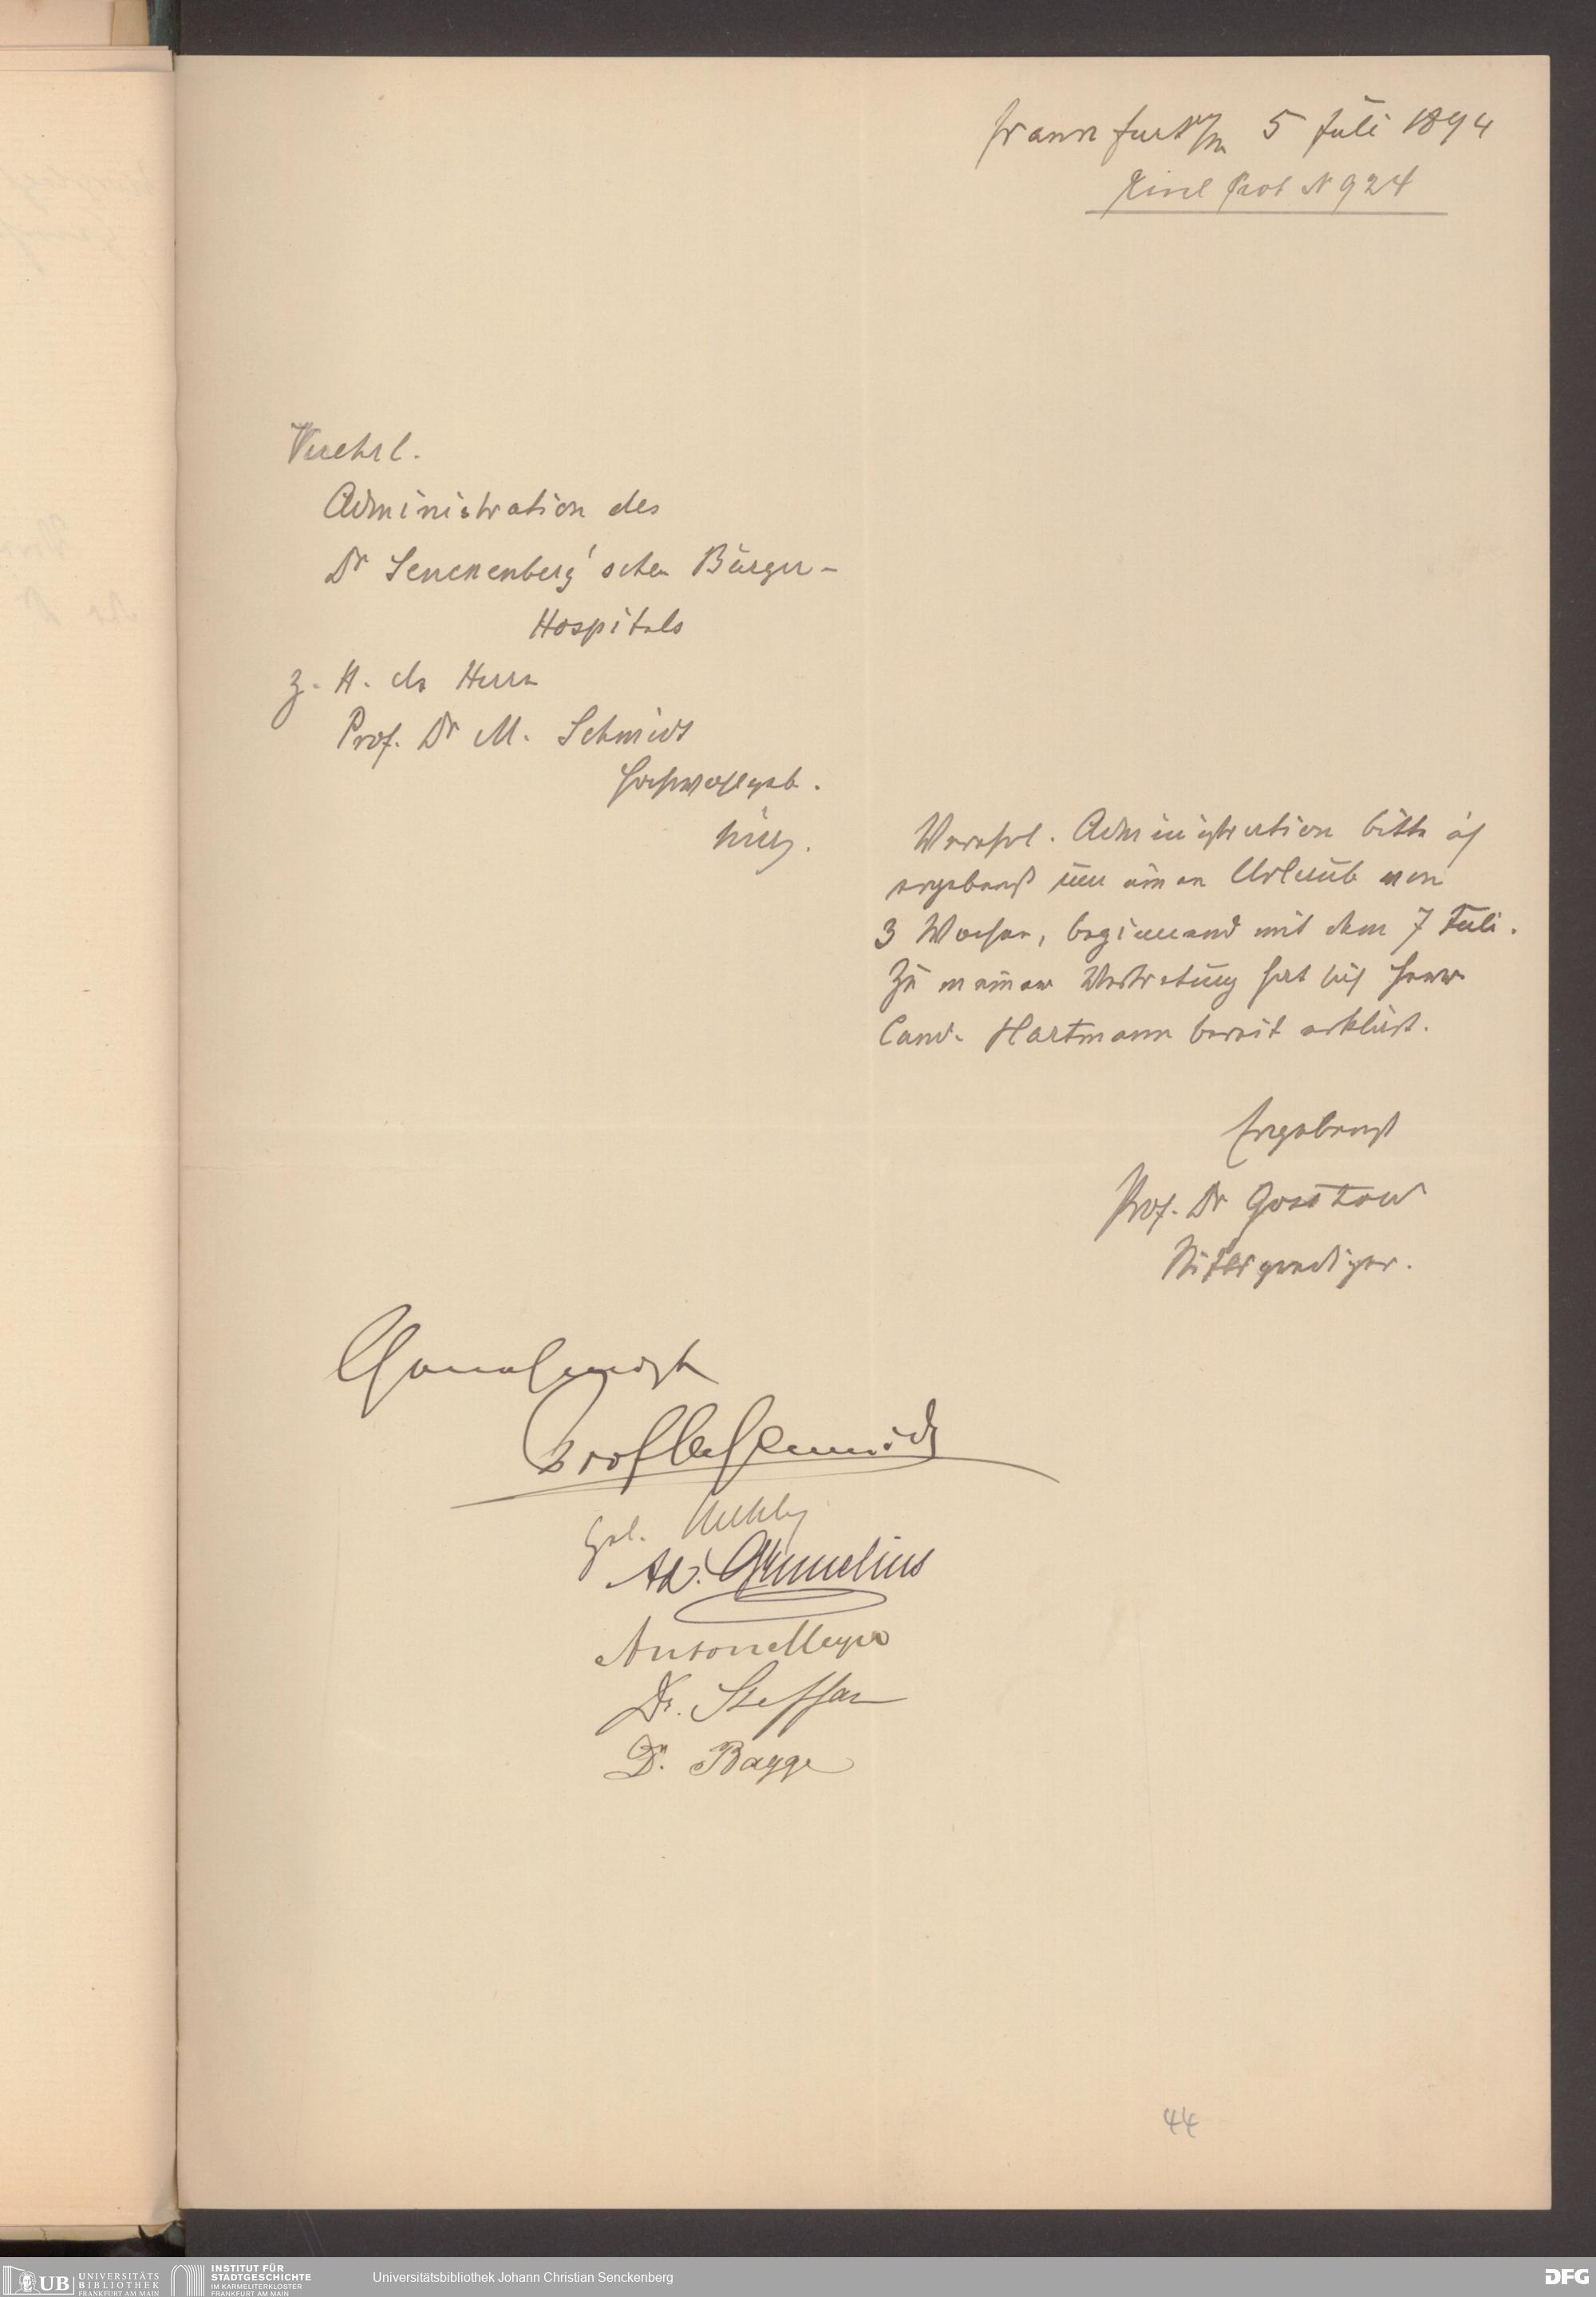 Frankfurt a/m 5 Juli 1894
Einl Prot N 924
Verehrl.
Administration des
Dr Senckenberg'schen Bürger-
Hospitals
z. H. des Herrn
Prof. Dr M. Schmidt
Hochwohlgeb.
hier.
Verehrl. Administration bitte ich
ergebenst um einen Urlaub von
3 Wochen, beginnend mit dem 7 Juli.
Zu meiner Vertretung hat sich Herr
Cand. Hartmann bereit erklärt.
Ergebenst
Prof. Dr
Genehmigt
Prof M Schmidt
Gel.
Ad. Gummelius
Anton Meyer
Dr. Steffan
Dr. Bagge
44
UB UNIVERSITÄTS BIBLIOTHEK FRANKFURT AM MAIN
INSTITUT FÜR STADTGESCHICHTE IM KARMELITERKLOSTER FRANKFURT AM MAIN
Universitätsbibliothek Johann Christian Senckenberg
DFG